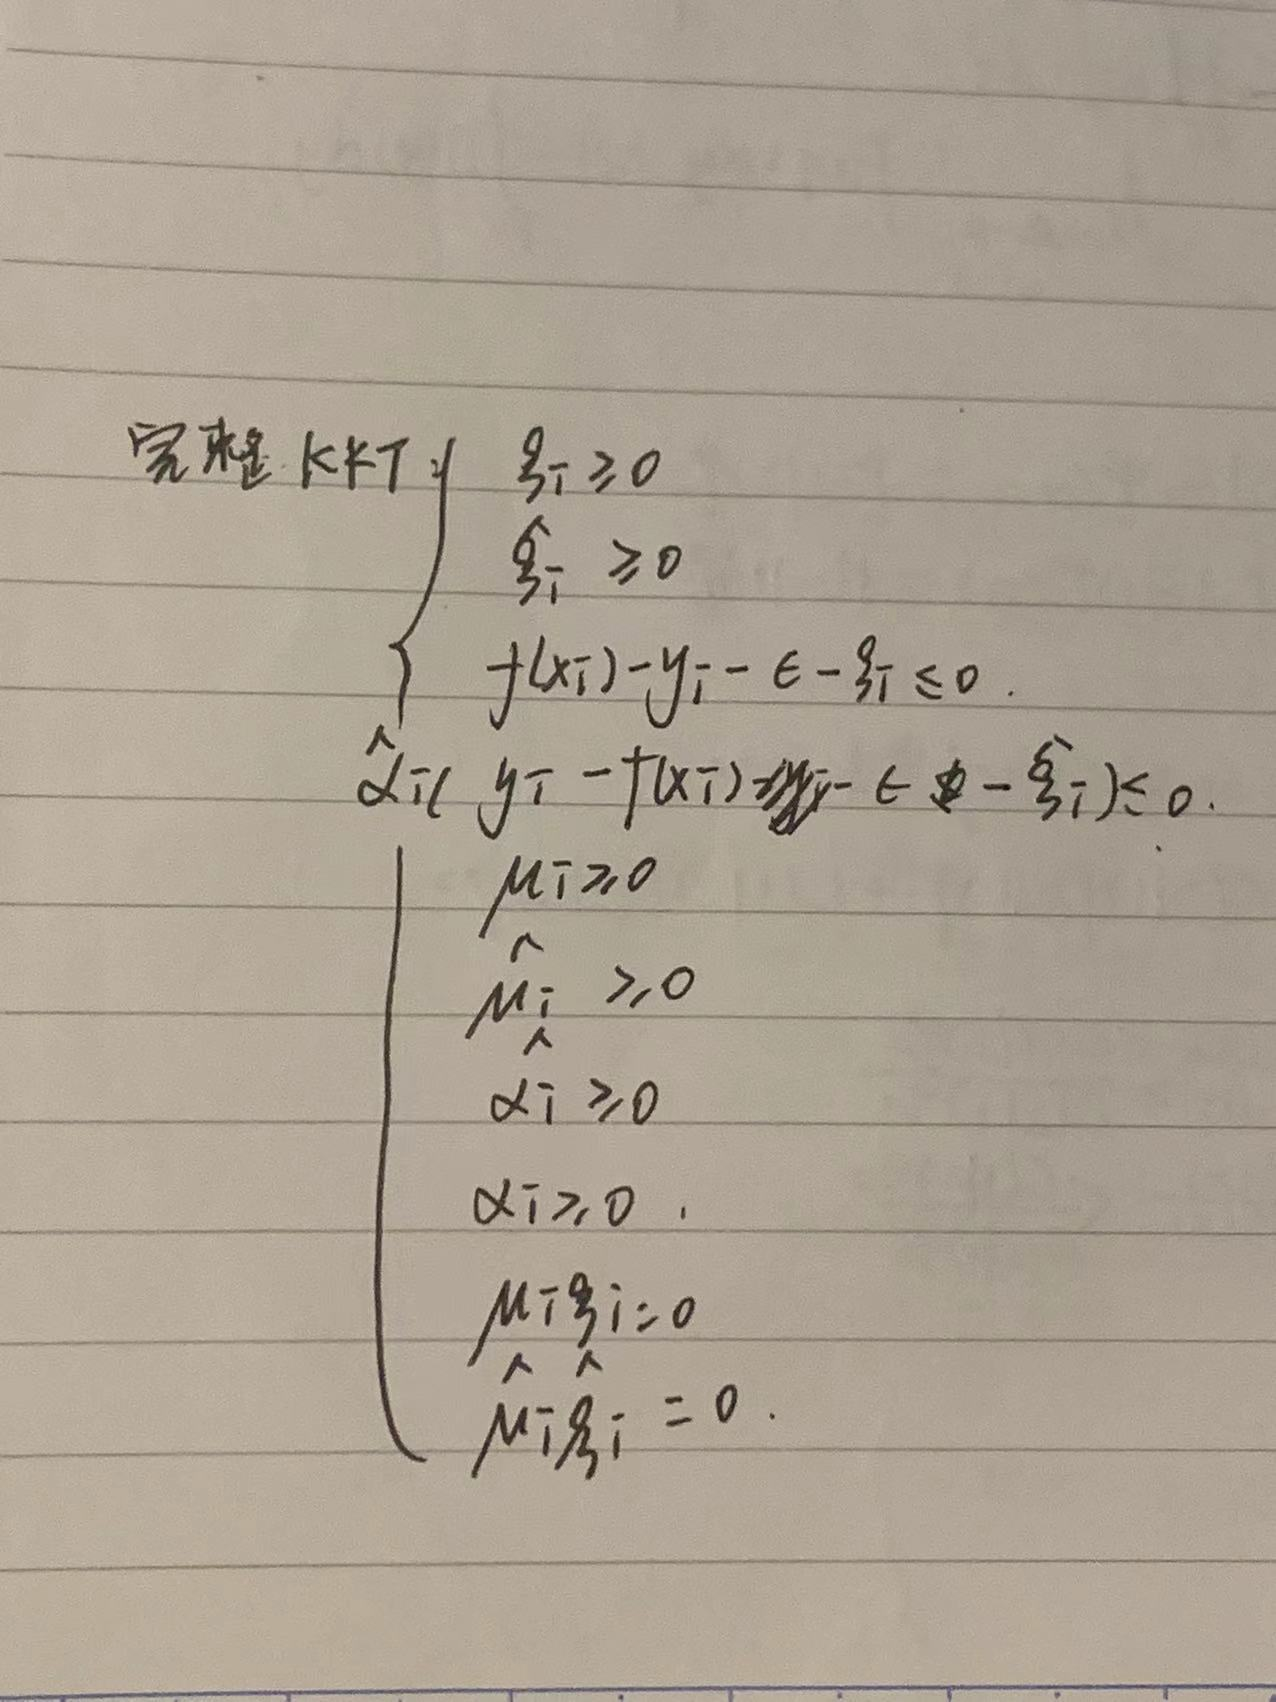 完整KKT:{ ξi ≥ 0
ξ̂i ≥ 0
f(xi) - yi - ϵ - ξi ≤ 0.
α̂i( yi - f(xi) - ϵ - ξ̂i) ≤ 0.
μi ≥ 0
μ̂i ≥ 0
α̂i ≥ 0
αi ≥ 0.
μiξi = 0
μ̂iξ̂i = 0.